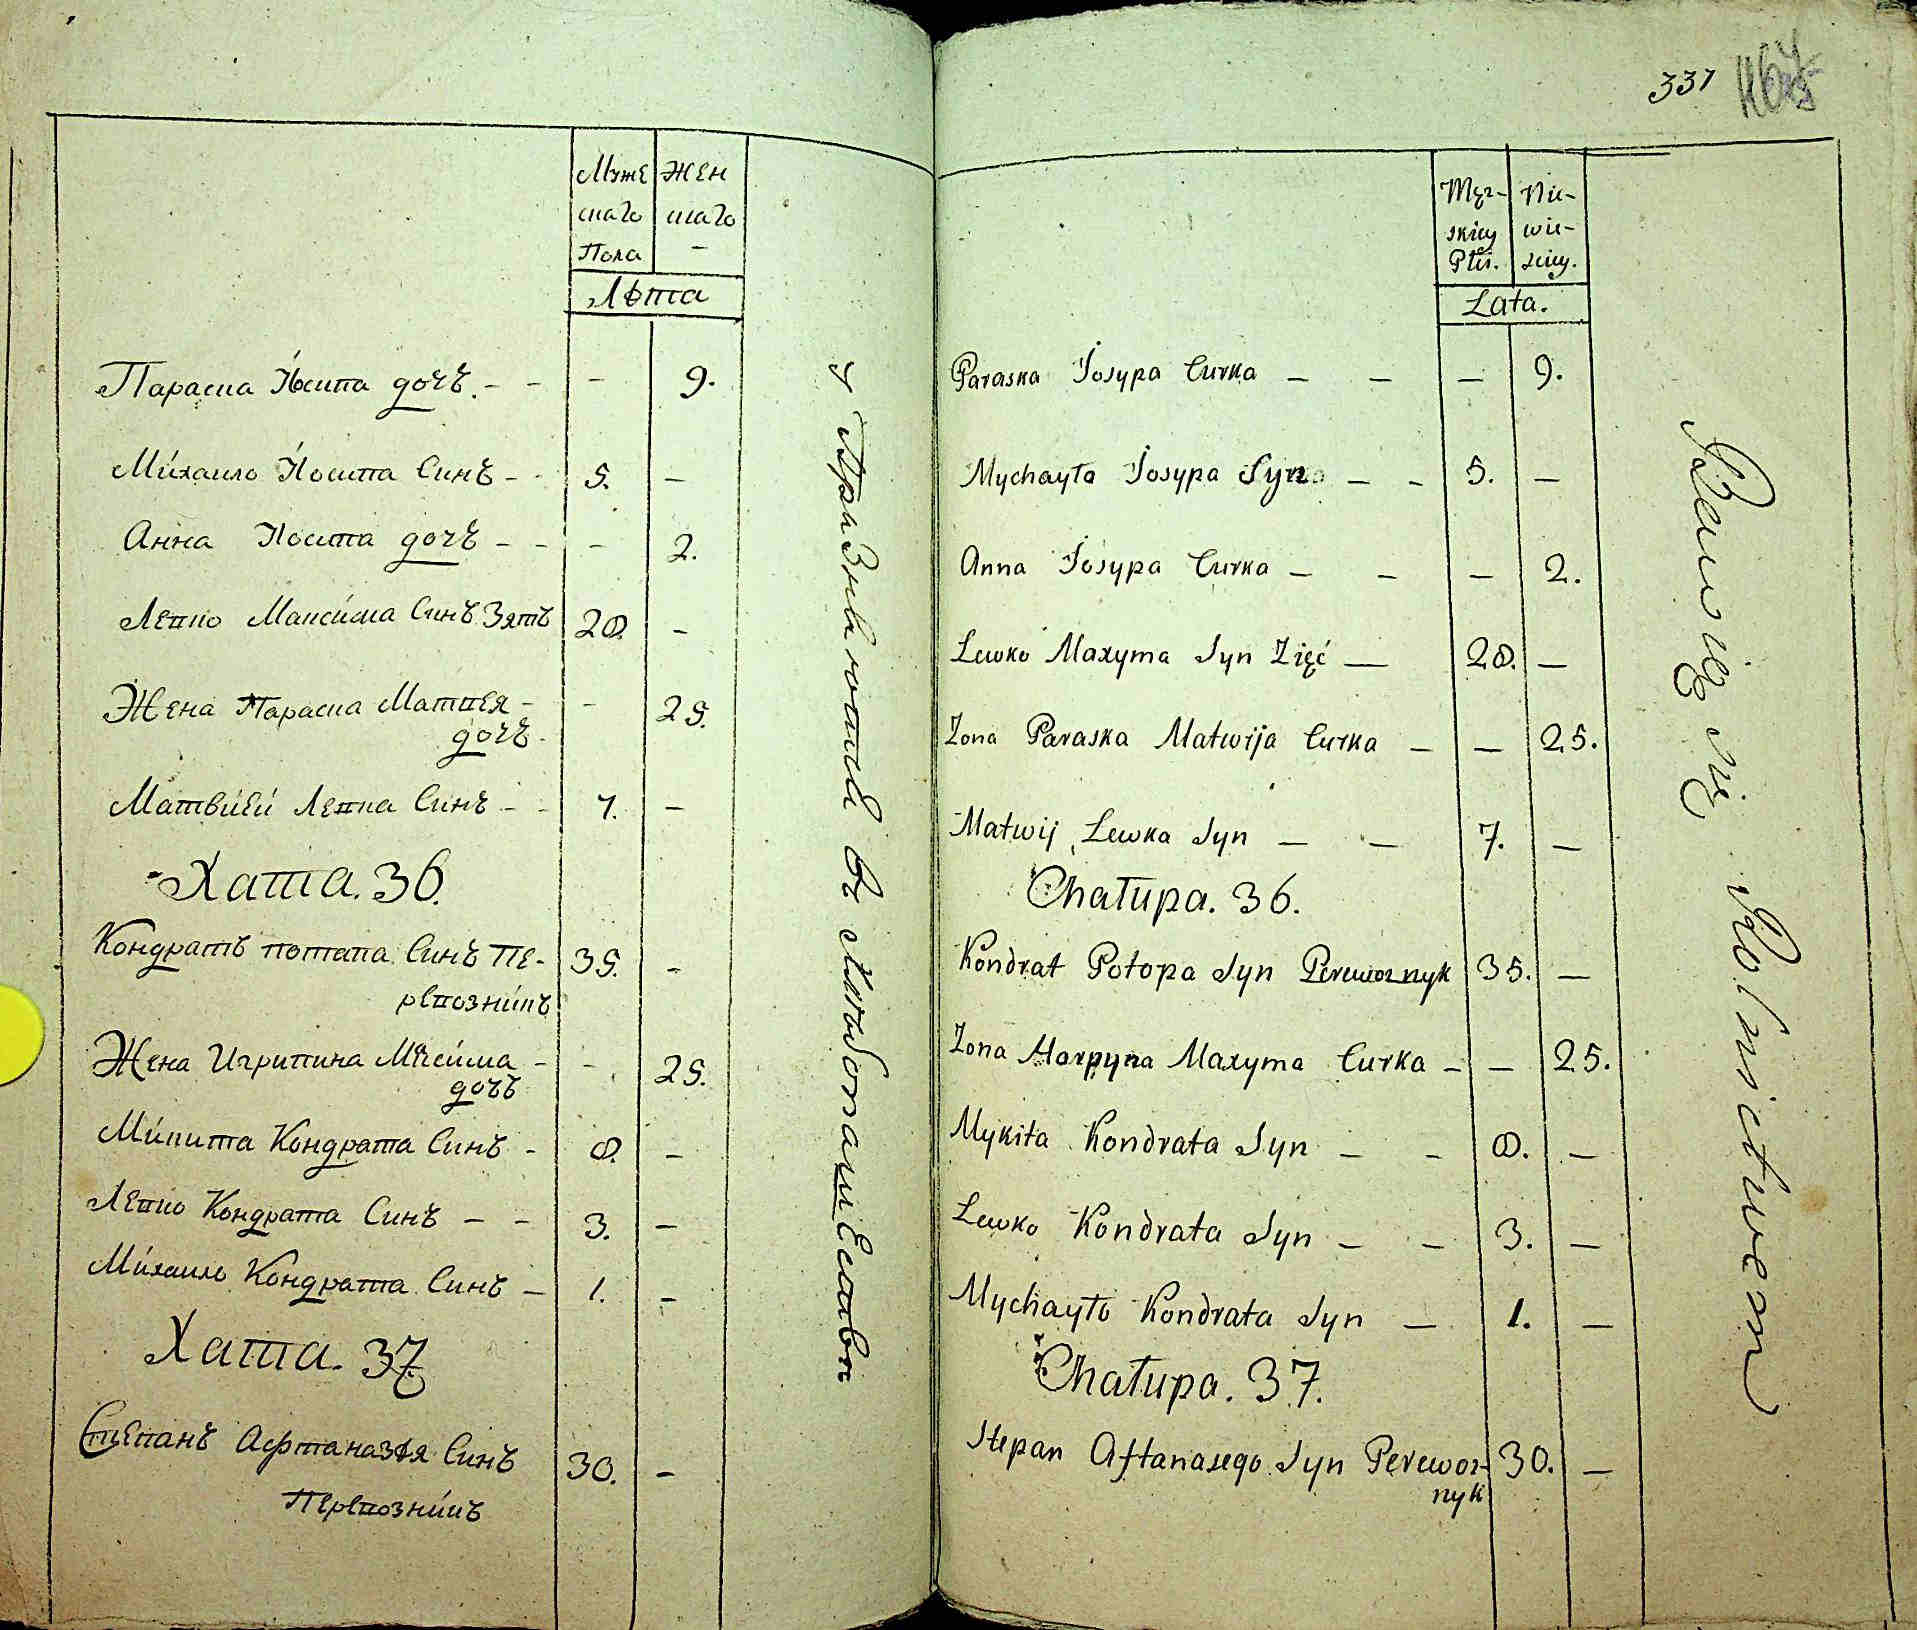 Муже Жен
скаго скаго
Пола –
Лѣта
Параска Йосипа дочъ. – – – 9.
Михаило Йосипа Синъ – – 5. –
Анна Йосипа дочъ – – – 2.
Левко Максима Синъ Зять 28. –
Жена Параска Матвея – – 25.
дочъ.
Матвией Левка Синъ – – 7. –
Хата. 36.
Кондратъ потапа Синъ Пе- 35. –
ревозникъ
Жена Игрипина Максима – – 25.
дочъ
Микита Кондрата Синъ – 8. –
Левко Кондрата Синъ – – 3. –
Михаило Кондрата Синъ – 1. –
Хата. 37.
Степанъ Афтаназія Синъ 30. –
Перевозникъ
337
Męz- Nie-
skiey wie-
Płci. sciey.
Lata.
Paraska Josypa Curka – – – 9.
Mychayło Josypa Syn – – 5. –
Anna Josypa Curka – – – 2.
Lewko Maxyma Syn Zięć — 28. –
Zona Paraska Matwija Curka – – 25.
Matwij Lewka Syn – – 7. –
Chałupa. 36.
Kondrat Potopa Syn Perewoznyk 35. –
Zona Horpyna Maxyma Curka – – 25.
Mykita Kondrata Syn – – 8. –
Lewko Kondrata Syn – – 3. –
Mychayło Kondrata Syn – 1. –
Chałupa. 37.
Stepan Aftanasego Syn Perewoz- 30. –
nyk
Bawię się Rolnictwem